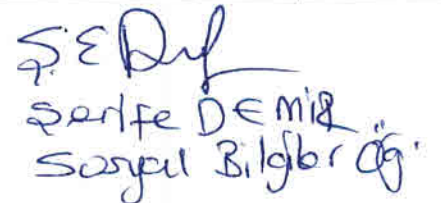 Şerife DEMİR
Sosyal Bilgiler Öğ.